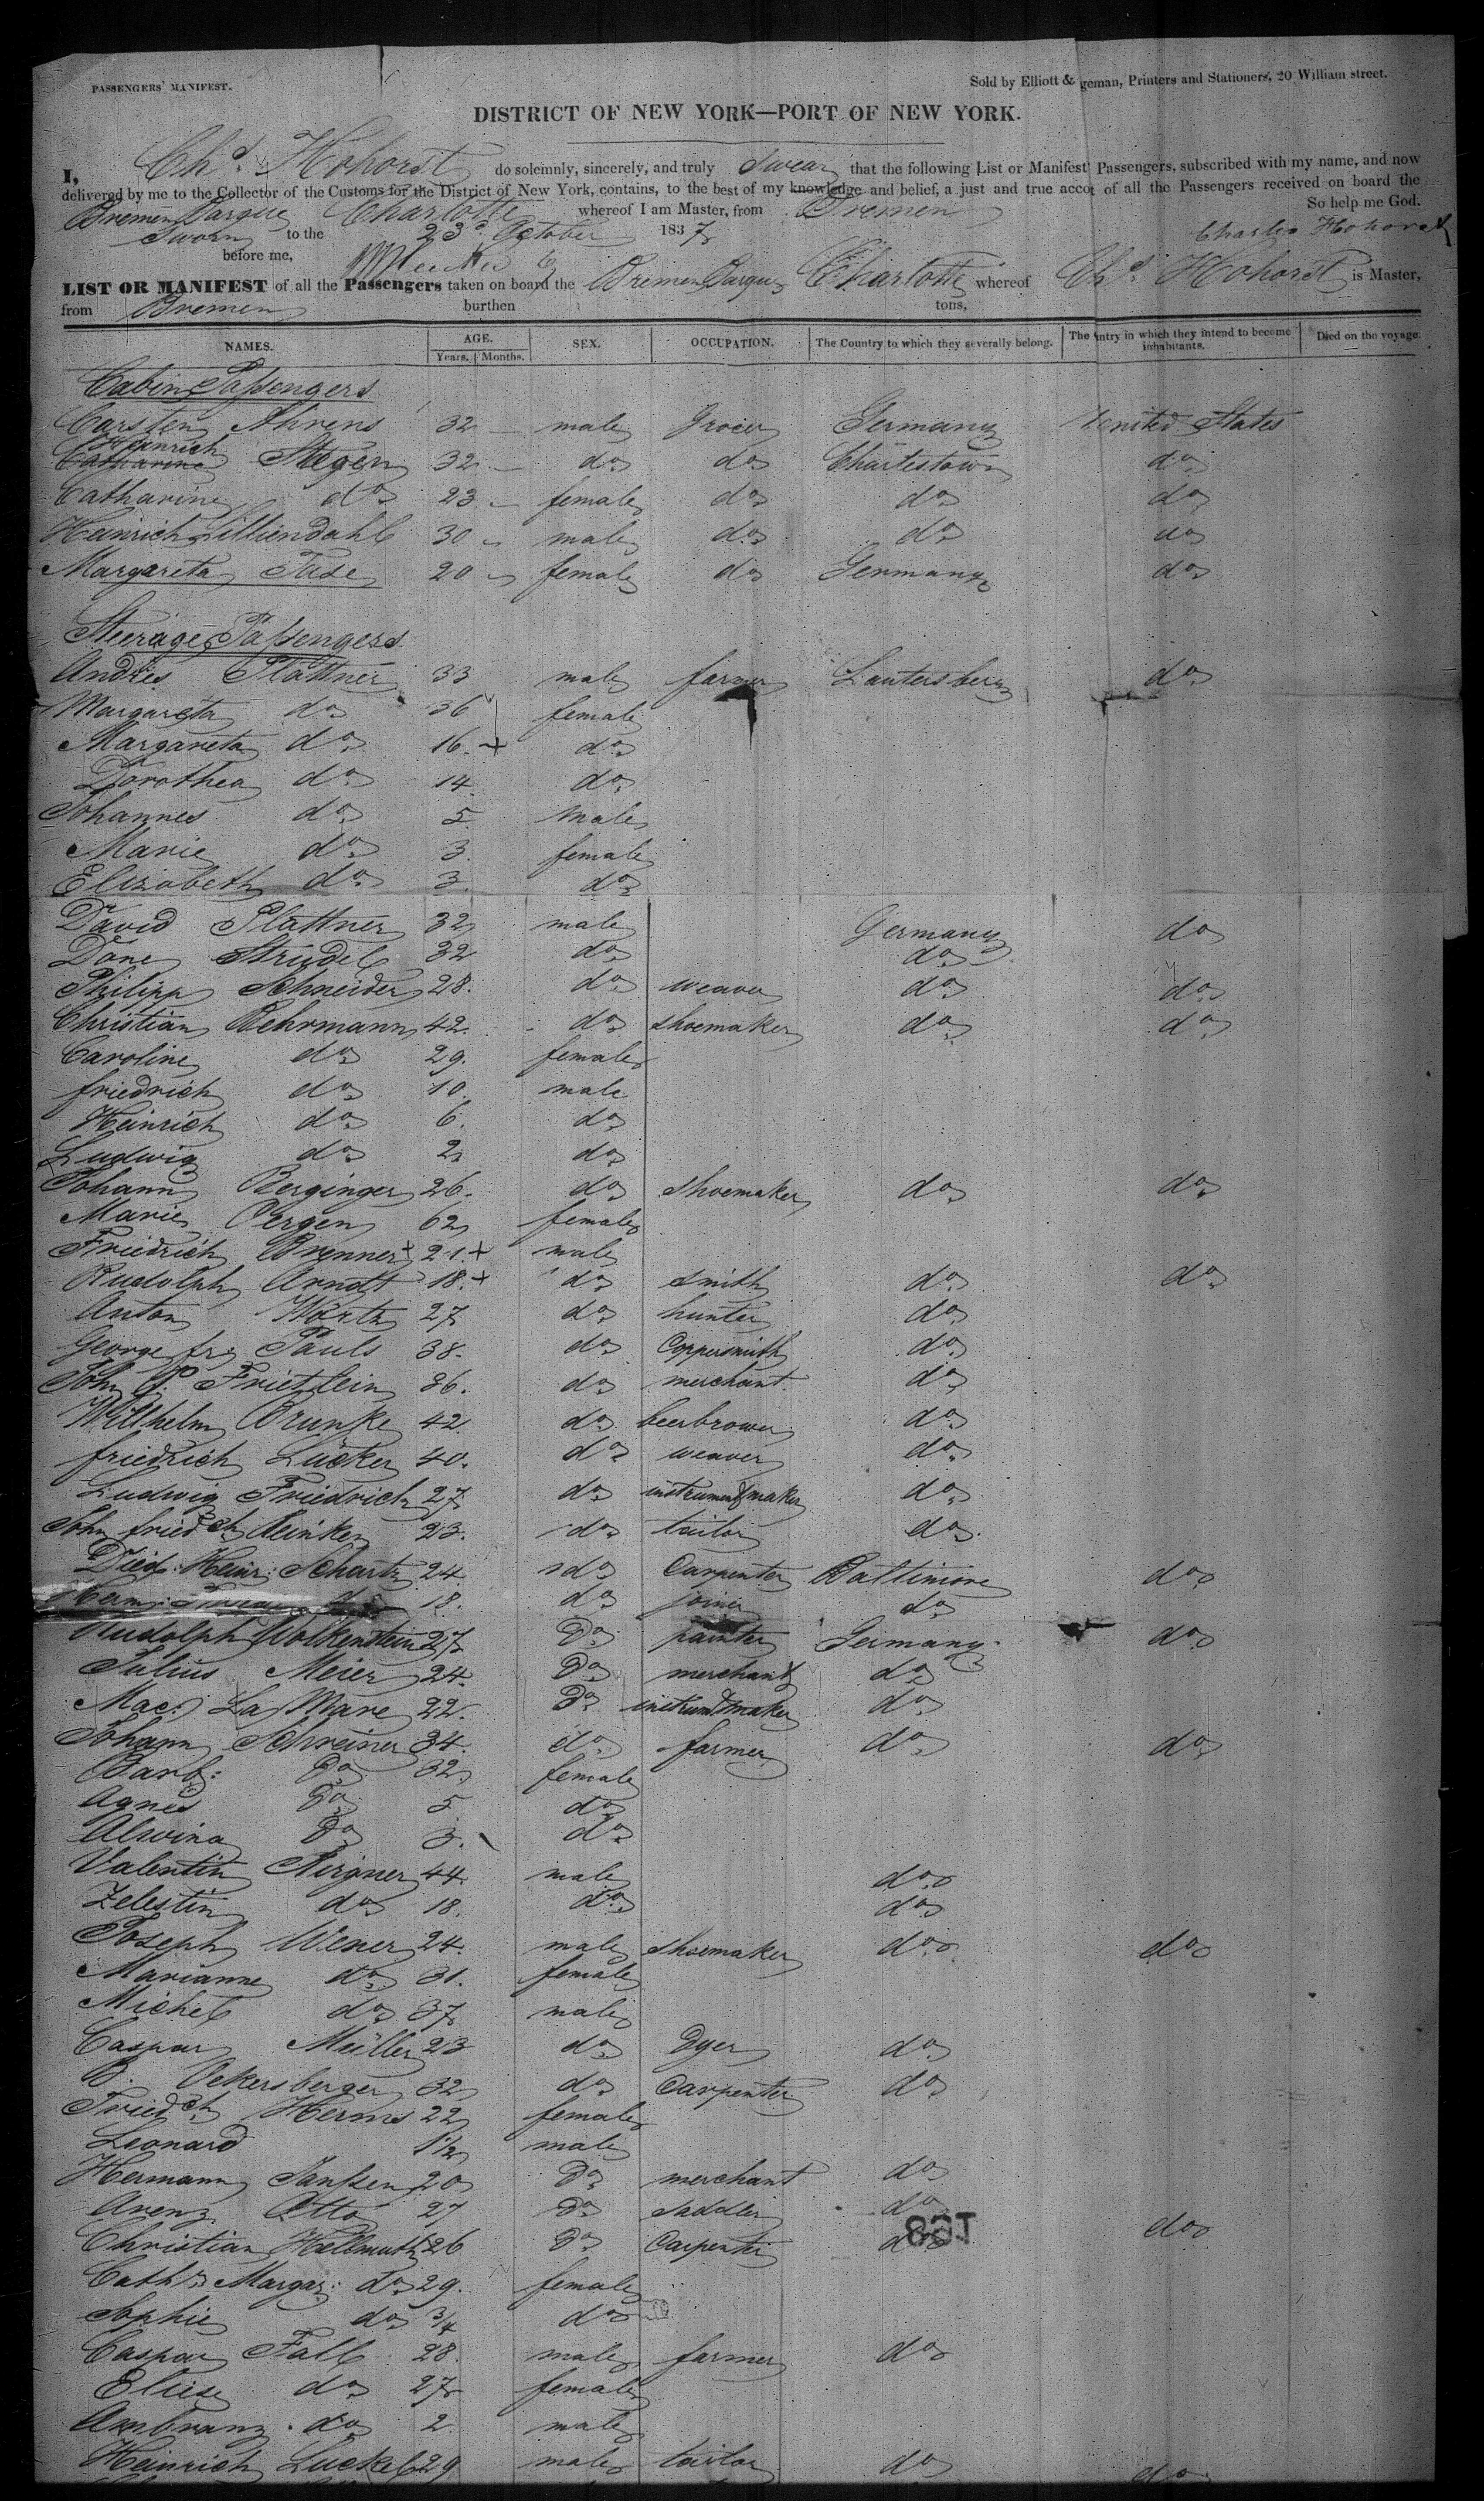 PASSENGERS' MANIFEST.
Sold by Elliott & geman, Printers and Stationers, 20 William street.
DISTRICT OF NEW YORK—PORT OF NEW YORK.
I, Chs. Hohorst do solemnly, sincerely, and truly swear that the following List or Manifest Passengers, subscribed with my name, and now
delivered by me to the Collector of the Customs for the District of New York, contains, to the best of my knowledge and belief, a just and true accot of all the Passengers received on board the
Bremen Barque Charlotte whereof I am Master, from Bremen So help me God.
Sworn to the 23d October 1837 Charles Hohorst
before me,
LIST OR MANIFEST of all the Passengers taken on board the Bremen Barque Charlotte whereof Chs. Hohorst is Master,
from Bremen burthen tons,
NAMES. AGE. Years. Months. SEX. OCCUPATION. The Country to which they severally belong. The ntry in which they intend to become inhabitants. Died on the voyage.
Cabin Passengers
Carsten Ahrens 32 male Grocer Germany United States
Heinrich
Catharine Stegen 32 do do Charlestown do
Catharine do 23 female do do do
Heinrich Lilliendahl 30 male do do do
Margareta 20 female do Germany do
Steerage Passengers
Andres Plattner 33 male farmer Lautersberg do
Margareta do 36 female
Margareta do 16 + do
Dorothea do 14 do
Johannes do 5 male
Marie do 3 female
Elizabeth do 3 do
David Plattner 32 male Germany do
Strudel 32 do do
Philipp Schneider 28 do weaver do do
Christian Behrmann 42 do shoemaker do do
Caroline do 29 female
friedrich do 10 male
Heinrich do 6 do
Ludwig do 2 do
Johann Berginger 26 do shoemaker do do
Marie Bergen 62 female
Friedrich Brenner + 21 + male
Rudolph Arndt 18 + do smith do do
Anton 27 do hunter do
George fr Pauls 38 do Coppersmith do
John P. Frietzlein 36 do merchant do
Willhelm Brunke 42 do beerbrower do
friedrich Lücker 40 do weaver do
Ludwig Friedrich 27 do instrumentmaker do
John friedch Reinken 23 do tailor do
Died. Heinr. Schartz 24 do Carpenter Baltimore do
Herm. 18 do joiner do
Rudolph Wolkenstein 27 do painter Germany do
Julius Meier 24 do merchant do
Mac. La Mare 22 do instrumtmaker do
Johann Schreiner 34 do farmer do do
Barb: do 32 female
Agnes do 5 do
Alwina do 3 do
Valentin 44 male do
Zelestin do 18 do do
Joseph Wener 24 male shoemaker do do
Marianne do 31 female
Michel do 37 male
Caspar Müller 23 do Dyer do
B. Oekersberger 32 do Carpenter do
Friedch Herms 22 female
Leonard 1½ male
Hermann Janssen 20 do merchant do
Arenz Otto 27 do Saddler do
Christian Hellmuth 26 do Carpenter do do
Cath. Margar: do 29 female
Sophie do ¾ do
Caspar Fall 28 male farmer do
Eliese do 27 female
do 2 male
Heinrich Luckel 29 male tailor do do